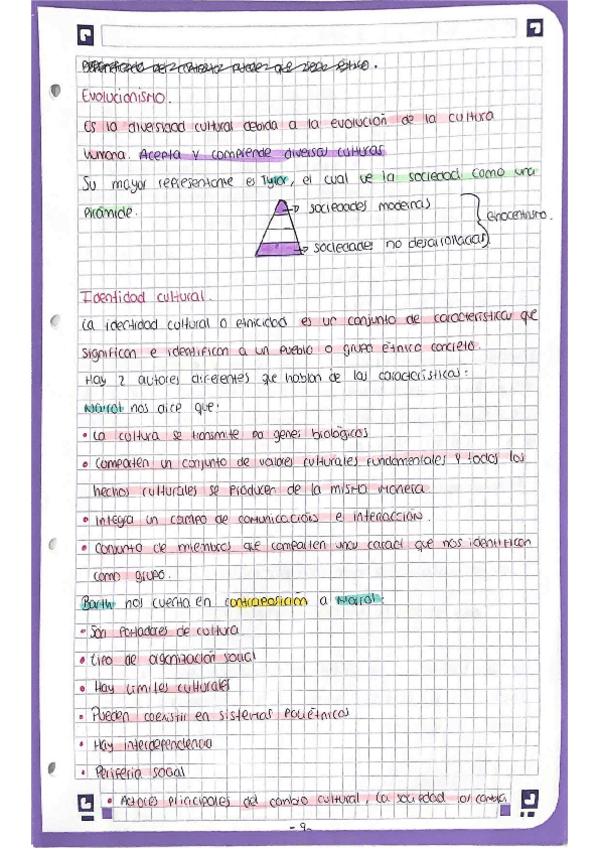 Evolucionismo.
Es la diversidad cultural debida a la evolución de la cultura
humana. Acepta y comprende diversas culturas
Su mayor representante es Tylor, el cual ve la sociedad como una
pirámide.
sociedades modernas
etnocentrismo.
sociedades no desarrolladas
Identidad cultural.
La identidad cultural o etnicidad es un conjunto de características que
significan e identifican a un pueblo o grupo étnico concreto.
Hay 2 autores diferentes que hablan de las características:
Narrol nos dice que:
• La cultura se transmite por genes biológicos
• Comparten un conjunto de valores culturales fundamentales y todos los
hechos culturales se producen de la misma manera
• Integra un campo de comunicación e interacción.
• Conjunto de miembros que comparten unas caract que nos identifican
como grupo.
Barth nos cuenta en contraposición a Narrol:
• Son portadores de cultura
• tipo de organización social
• Hay límites culturales
• Pueden coexistir en sistemas poliétnicos
• Hay interdependencia
• Periferia social
• Actores principales del cambio cultural, la sociedad los cambia
- 9